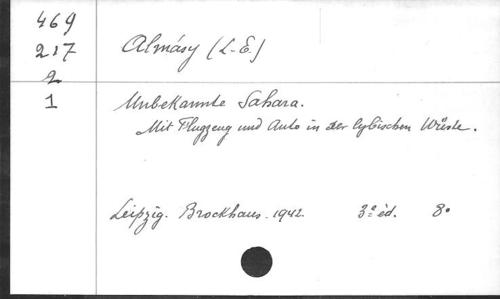 469
217
2
1
Almásy (L.-E.)
Unbekannte Sahara.
Mit Flugzeug und Auto in der lybischen Wüste.
Leipzig. Brockhaus. 1942. 3e éd. 8°